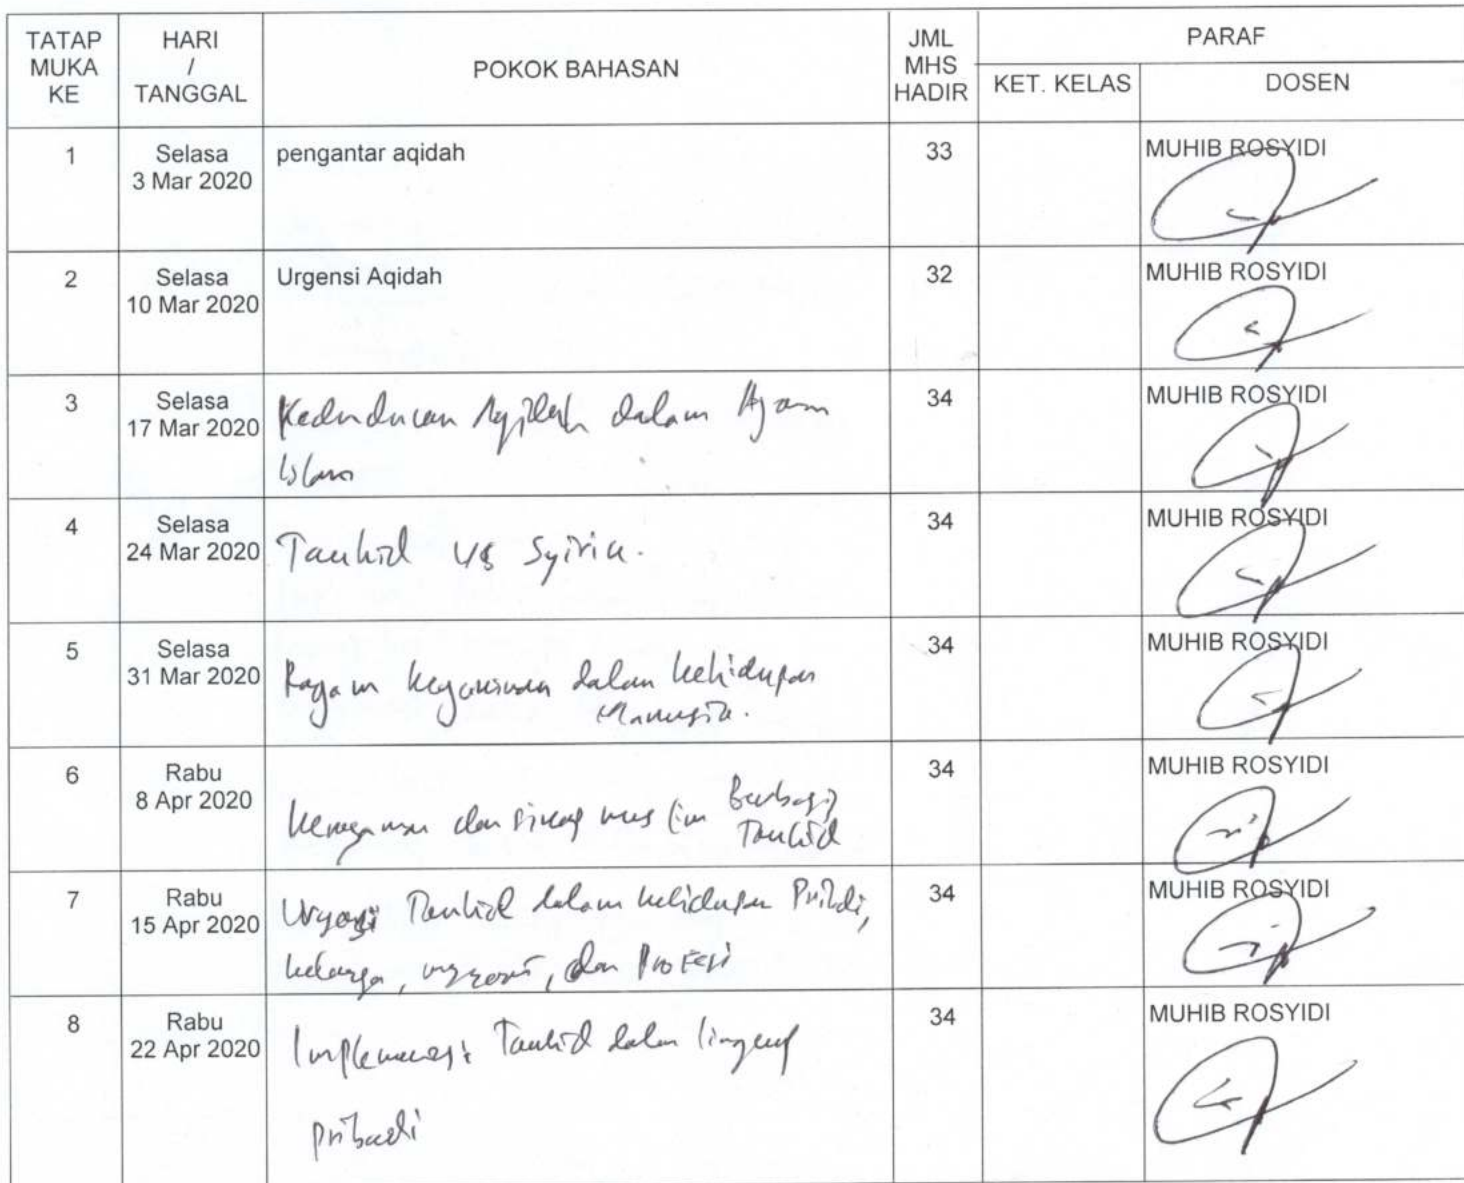 TATAP MUKA KE
HARI / TANGGAL
POKOK BAHASAN
JML MHS HADIR
PARAF
KET. KELAS
DOSEN
1
Selasa
3 Mar 2020
pengantar aqidah
33
MUHIB ROSYIDI
2
Selasa
10 Mar 2020
Urgensi Aqidah
32
MUHIB ROSYIDI
3
Selasa
17 Mar 2020
Kedudukan Aqidah dalam
Islam
34
MUHIB ROSYIDI
4
Selasa
24 Mar 2020
Tauhid vs Syirik.
34
MUHIB ROSYIDI
5
Selasa
31 Mar 2020
Ragam keyakinan dalam kehidupan
Manusia.
34
MUHIB ROSYIDI
6
Rabu
8 Apr 2020
dan sikap muslim
Tauhid
34
MUHIB ROSYIDI
7
Rabu
15 Apr 2020
Tauhid dalam kehidupan Pribadi,
keluarga, dan Profesi
34
MUHIB ROSYIDI
8
Rabu
22 Apr 2020
Implementasi Tauhid dalam
pribadi
34
MUHIB ROSYIDI